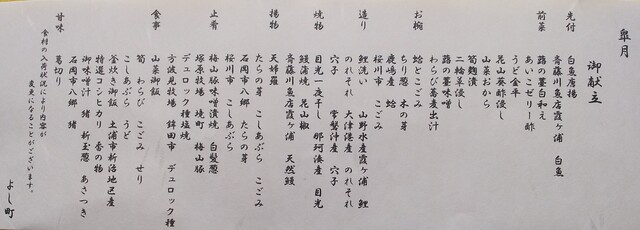 皐月
御献立
先付 白魚唐揚
齊藤川魚店霞ヶ浦 白魚
前菜 蕗の薹白和え
あいこゼリー酢
うど金平
昆山葵酢浸し
山菜おから
筍麹漬
二輪草浸し
蕗の薹味噌
わらび蕎麦出汁
お椀 蛤とこごみ
ちり葱 木の芽
鹿嶋産 蛤
桜川市 こごみ
造り 鯉洗い 山野水産霞ヶ浦 鯉
のれそれ 大津港産 のれそれ
穴子 常磐沖産 穴子
焼物 目光一夜干し 那珂湊産 目光
鰻蒲焼 昆山椒
齊藤川魚店霞ヶ浦 天然鰻
揚物 天婦羅
たらの芽 こしあぶら こごみ
石岡市八郷 たらの芽
桜川市 こしあぶら
止肴 梅山豚味噌漬焼 白髪葱
塚原牧場 境町 梅山豚
デュロック種塩焼
方波見牧場 鉾田市 デュロック種
食事 山菜御飯
筍 わらび こごみ せり
こしあぶら うど
釜炊き御飯 土浦市新治地区産
特選コシヒカリ 香の物
御味噌汁 猪 新玉葱 あさつき
石岡市八郷 猪
甘味 葛切り
食材の入荷状況により内容が
変更になることがございます。
よし町